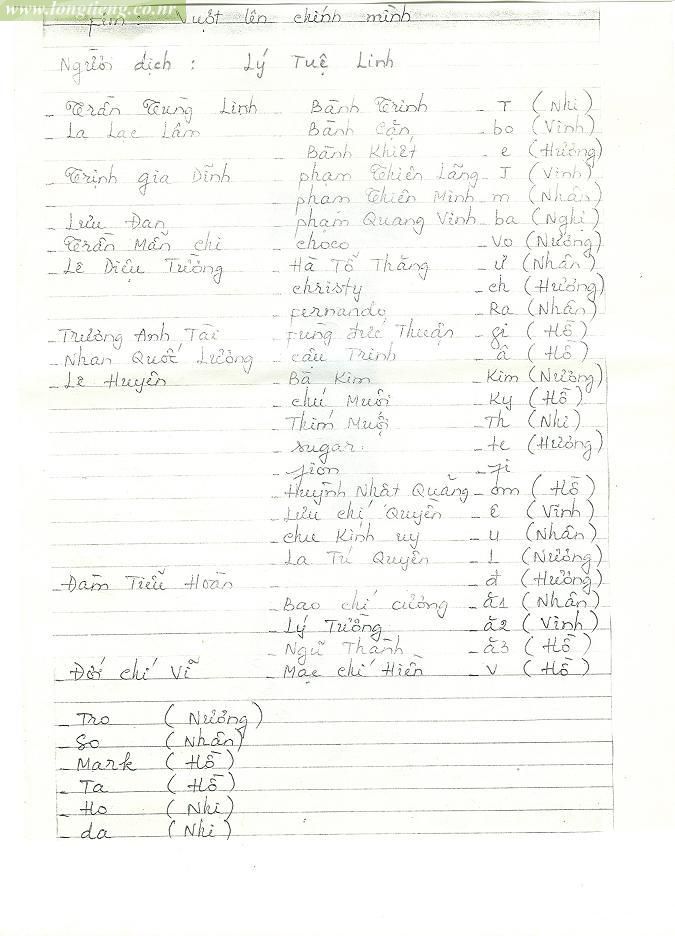 www.longtieng.co.nr
Fim : Vượt lên chính mình
Người dịch : Lý Tuệ Linh
- Trần Tùng Linh - Bành Trinh - T (Nhi)
- La Lạc Lâm - Bành Cần - bo (Vinh)
- Bành Khiết - e (Hương)
- Trịnh gia Dĩnh - phạm Thiên Lãng - J (Vinh)
- phạm Thiên Minh - m (Nhân)
- Lưu Đan - phạm Quang Vinh - ba (Nghị)
- Trần Mẫn chi - choco - vo (Nương)
- Lê Diệu Tường - Hà Tố Thăng - ư (Nhân)
- christy - ch (Hương)
- fernando - Ra (Nhân)
- Trương Anh Tài - Fung Đức Thuận - gi (Hồ)
- Nhan Quốc Lương - cậu Trinh - â (Hồ)
- Lê Huyên - Bà Kim - Kim (Nương)
- chú Muối - Ky (Hồ)
- Thím Muối - Th (Nhi)
- sugar - te (Hương)
- jion - ji
- Huỳnh Nhật Quang - om (Hồ)
- Lưu chí Quyền - ê (Vinh)
- chu Kính uy - u (Nhân)
- La Tú Quyên - l (Nương)
- Đàm Tiểu Hoàn - đ (Hương)
- Bao chí cương - ă1 (Nhân)
- Lý Tường - ă2 (Vinh)
- Ngũ Thành - ă3 (Hồ)
- Đới chí Vĩ - Mạc chí Hiền - v (Hồ)
- Tro (Nương)
- So (Nhân)
- Mark (Hồ)
- Ta (Hồ)
- Ho (Nhi)
- da (Nhi)